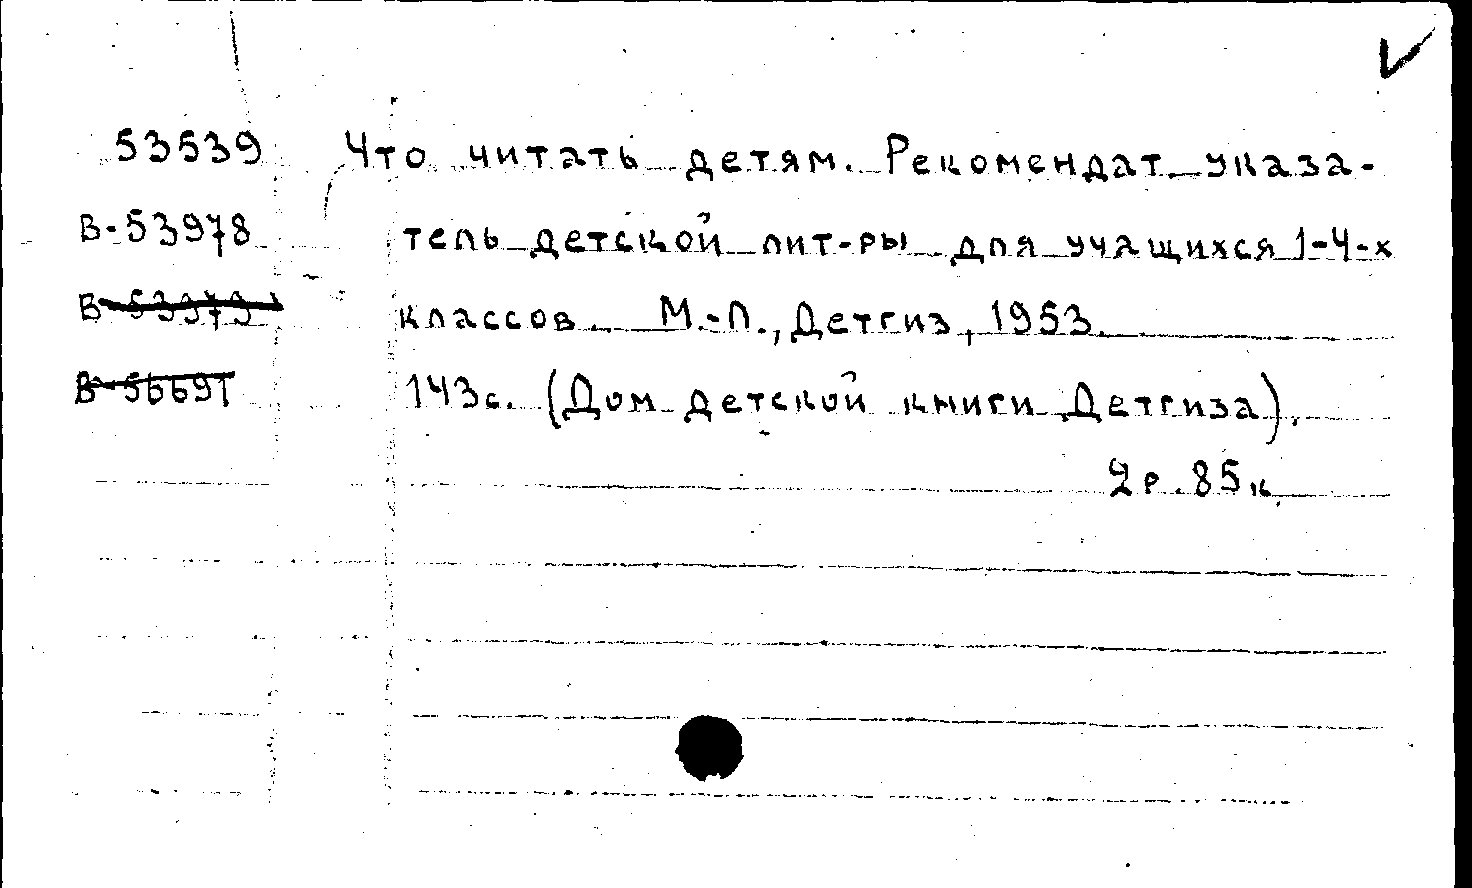 53539 Что читать детям. Рекомендат. указа-
В-53978 тель детской лит-ры для учащихся 1-4-х
В-53979 классов. М.-Л., Детгиз, 1953.
В-56691 143с. (Дом детской книги Детгиза).
2р.85к.